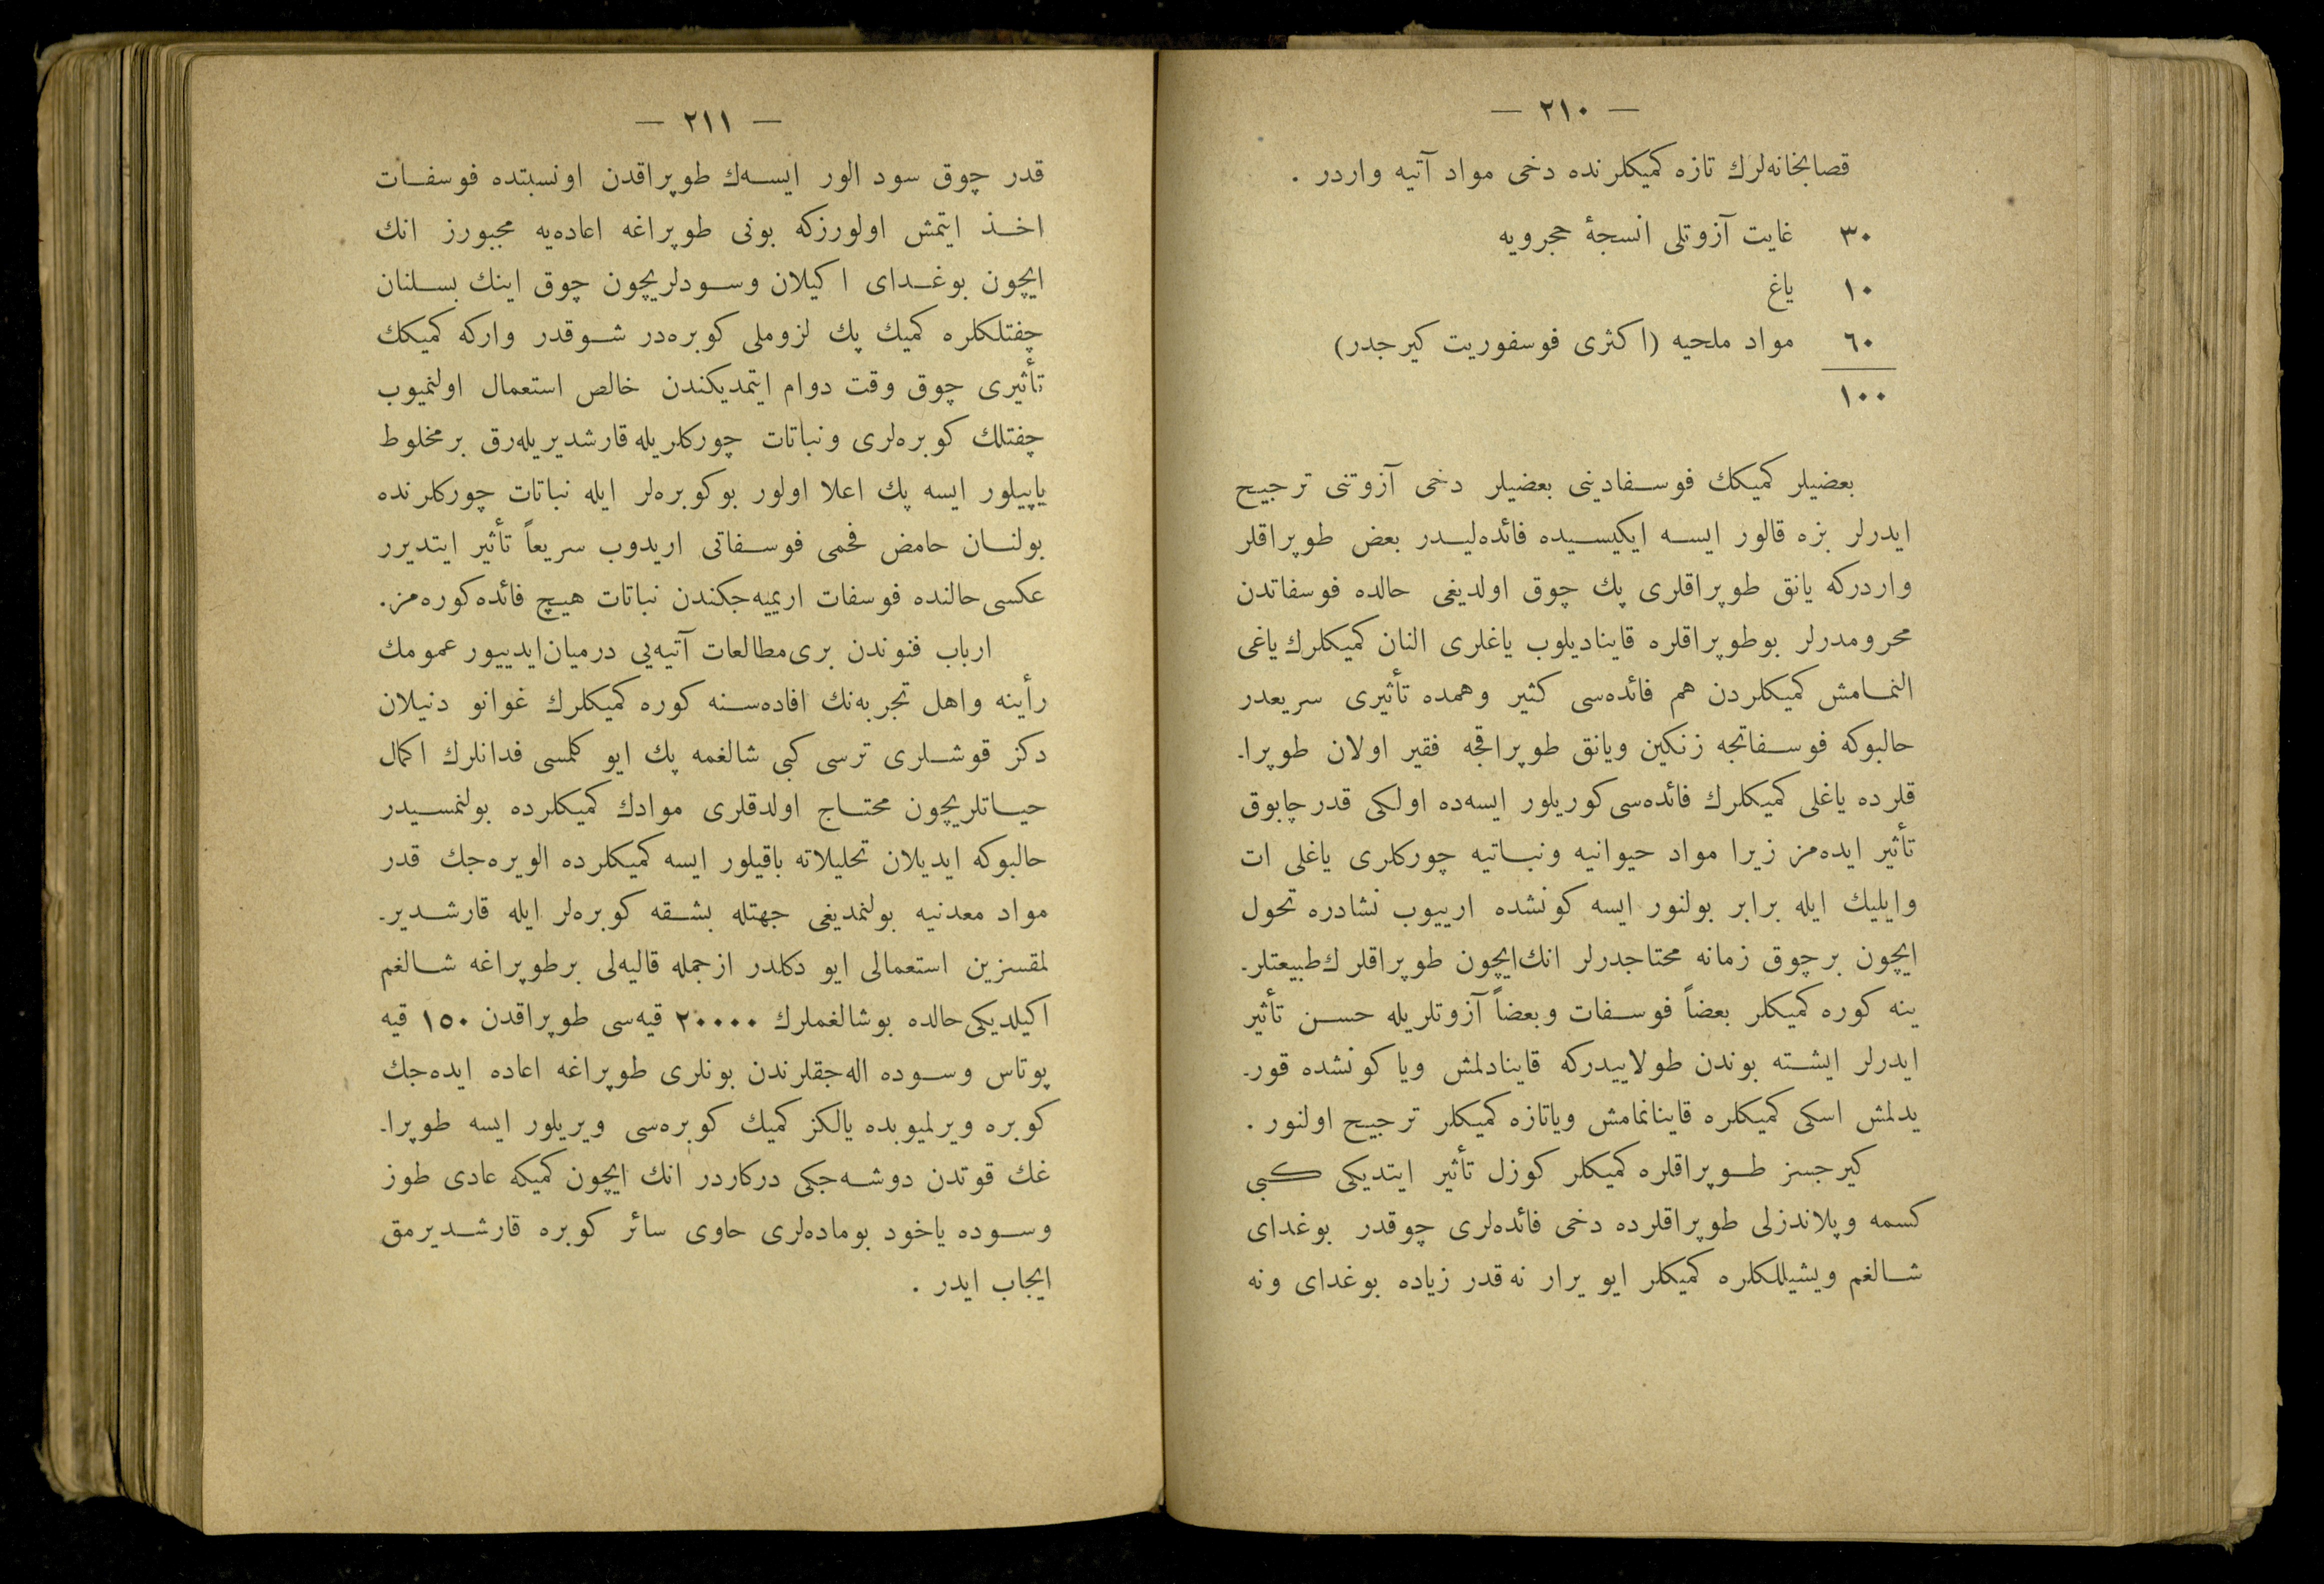 — ٢١٠ —
قصابخانه‌لرك تازه كميكلرنده دخی مواد آتيه واردر .
٣٠ غايت آزوتلی انسجهٔ حجرويه
١٠ ياغ
٦٠ مواد ملحيه (اكثری فوسفوريت كيرجدر)
١٠٠
بعضيلر كميكك فوسفادينی بعضيلر دخی آزوتنی ترجيح
ايدرلر بزه قالور ايسه ايكيسيده فائده‌ليدر بعض طوپراقلر
واردركه يانق طوپراقلری پك چوق اولديغی حالده فوسفاتدن
محرومدرلر بوطوپراقلره قايناديلوب ياغلری النان كميكلرك ياغی
النمامش كميكلردن هم فائده‌سی كثير وهمده تأثيری سريعدر
حالبوكه فوسفاتجه زنكين ويانق طوپراقجه فقير اولان طوپرا-
قلرده ياغلی كميكلرك فائده‌سی كوريلور ايسه‌ده اولكی قدر چابوق
تأثير ايده‌مز زيرا مواد حيوانيه ونباتيه چوركلری ياغلی ات
وايليك ايله برابر بولنور ايسه كونشده ارييوب نشادره تحول
ايچون برچوق زمانه محتاجدرلر انك‌ايچون طوپراقلرك طبيعتلر-
ينه كوره كميكلر بعضاً فوسفات وبعضاً آزوتلريله حسن تأثير
ايدرلر ايشته بوندن طولاييدركه قاينادلمش ويا كونشده قور-
يدلمش اسكی كميكلره قاينانمامش وياتازه كميكلر ترجيح اولنور .
كيرجسز طوپراقلره كميكلر كوزل تأثير ايتديكی كبی
كسمه وپلاندزلی طوپراقلرده دخی فائده‌لری چوقدر بوغدای
شالغم ويشيللكلره كميكلر ايو يرار نه قدر زياده بوغدای ونه
— ٢١١ —
قدر چوق سود الور ايسه‌ك طوپراقدن اونسبتده فوسفات
اخذ ايتمش اولورزكه بونی طوپراغه اعاده‌يه مجبورز انك
ايچون بوغدای اكيلان وسودلريچون چوق اينك بسلنان
چفتلكلره كميك پك لزوملی كوبره‌در شوقدر واركه كميكك
تأثيری چوق وقت دوام ايتمديكندن خالص استعمال اولنميوب
چفتلك كوبره‌لری ونباتات چوركلريله قارشديريله‌رق برمخلوط
ياپيلور ايسه پك اعلا اولور بوكوبره‌لر ايله نباتات چوركلرنده
بولنان حامض فحمی فوسفاتی اريدوب سريعاً تأثير ايتديرر
عكسی حالنده فوسفات اريميه‌جكندن نباتات هيچ فائده كوره‌مز.
ارباب فنوندن بری مطالعات آتيه‌يی درميان‌ايدييور عمومك
رأينه واهل تجربه‌نك افاده‌سنه كوره كميكلرك غوانو دنيلان
دكز قوشلری ترسی كبی شالغمه پك ايو كلمسی فدانلرك اكمال
حياتلريچون محتاج اولدقلری موادك كميكلرده بولنمسيدر
حالبوكه ايديلان تحليلاته باقيلور ايسه كميكلرده الويره‌جك قدر
مواد معدنيه بولنمديغی جهتله بشقه كوبره‌لر ايله قارشدير-
لمقسزين استعمالی ايو دكلدر ازجمله قاليه‌لی برطوپراغه شالغم
اكيلديكی حالده بوشالغملرك ٢٠٠٠٠ قيه‌سی طوپراقدن ١٥٠ قيه
پوتاس وسوده اله‌جقلرندن بونلری طوپراغه اعاده ايده‌جك
كوبره ويرلميوبده يالكز كميك كوبره‌سی ويريلور ايسه طوپرا-
غك قوتدن دوشه‌جكی دركاردر انك ايچون كميكه عادی طوز
وسوده ياخود بوماده‌لری حاوی سائر كوبره قارشديرمق
ايجاب ايدر .